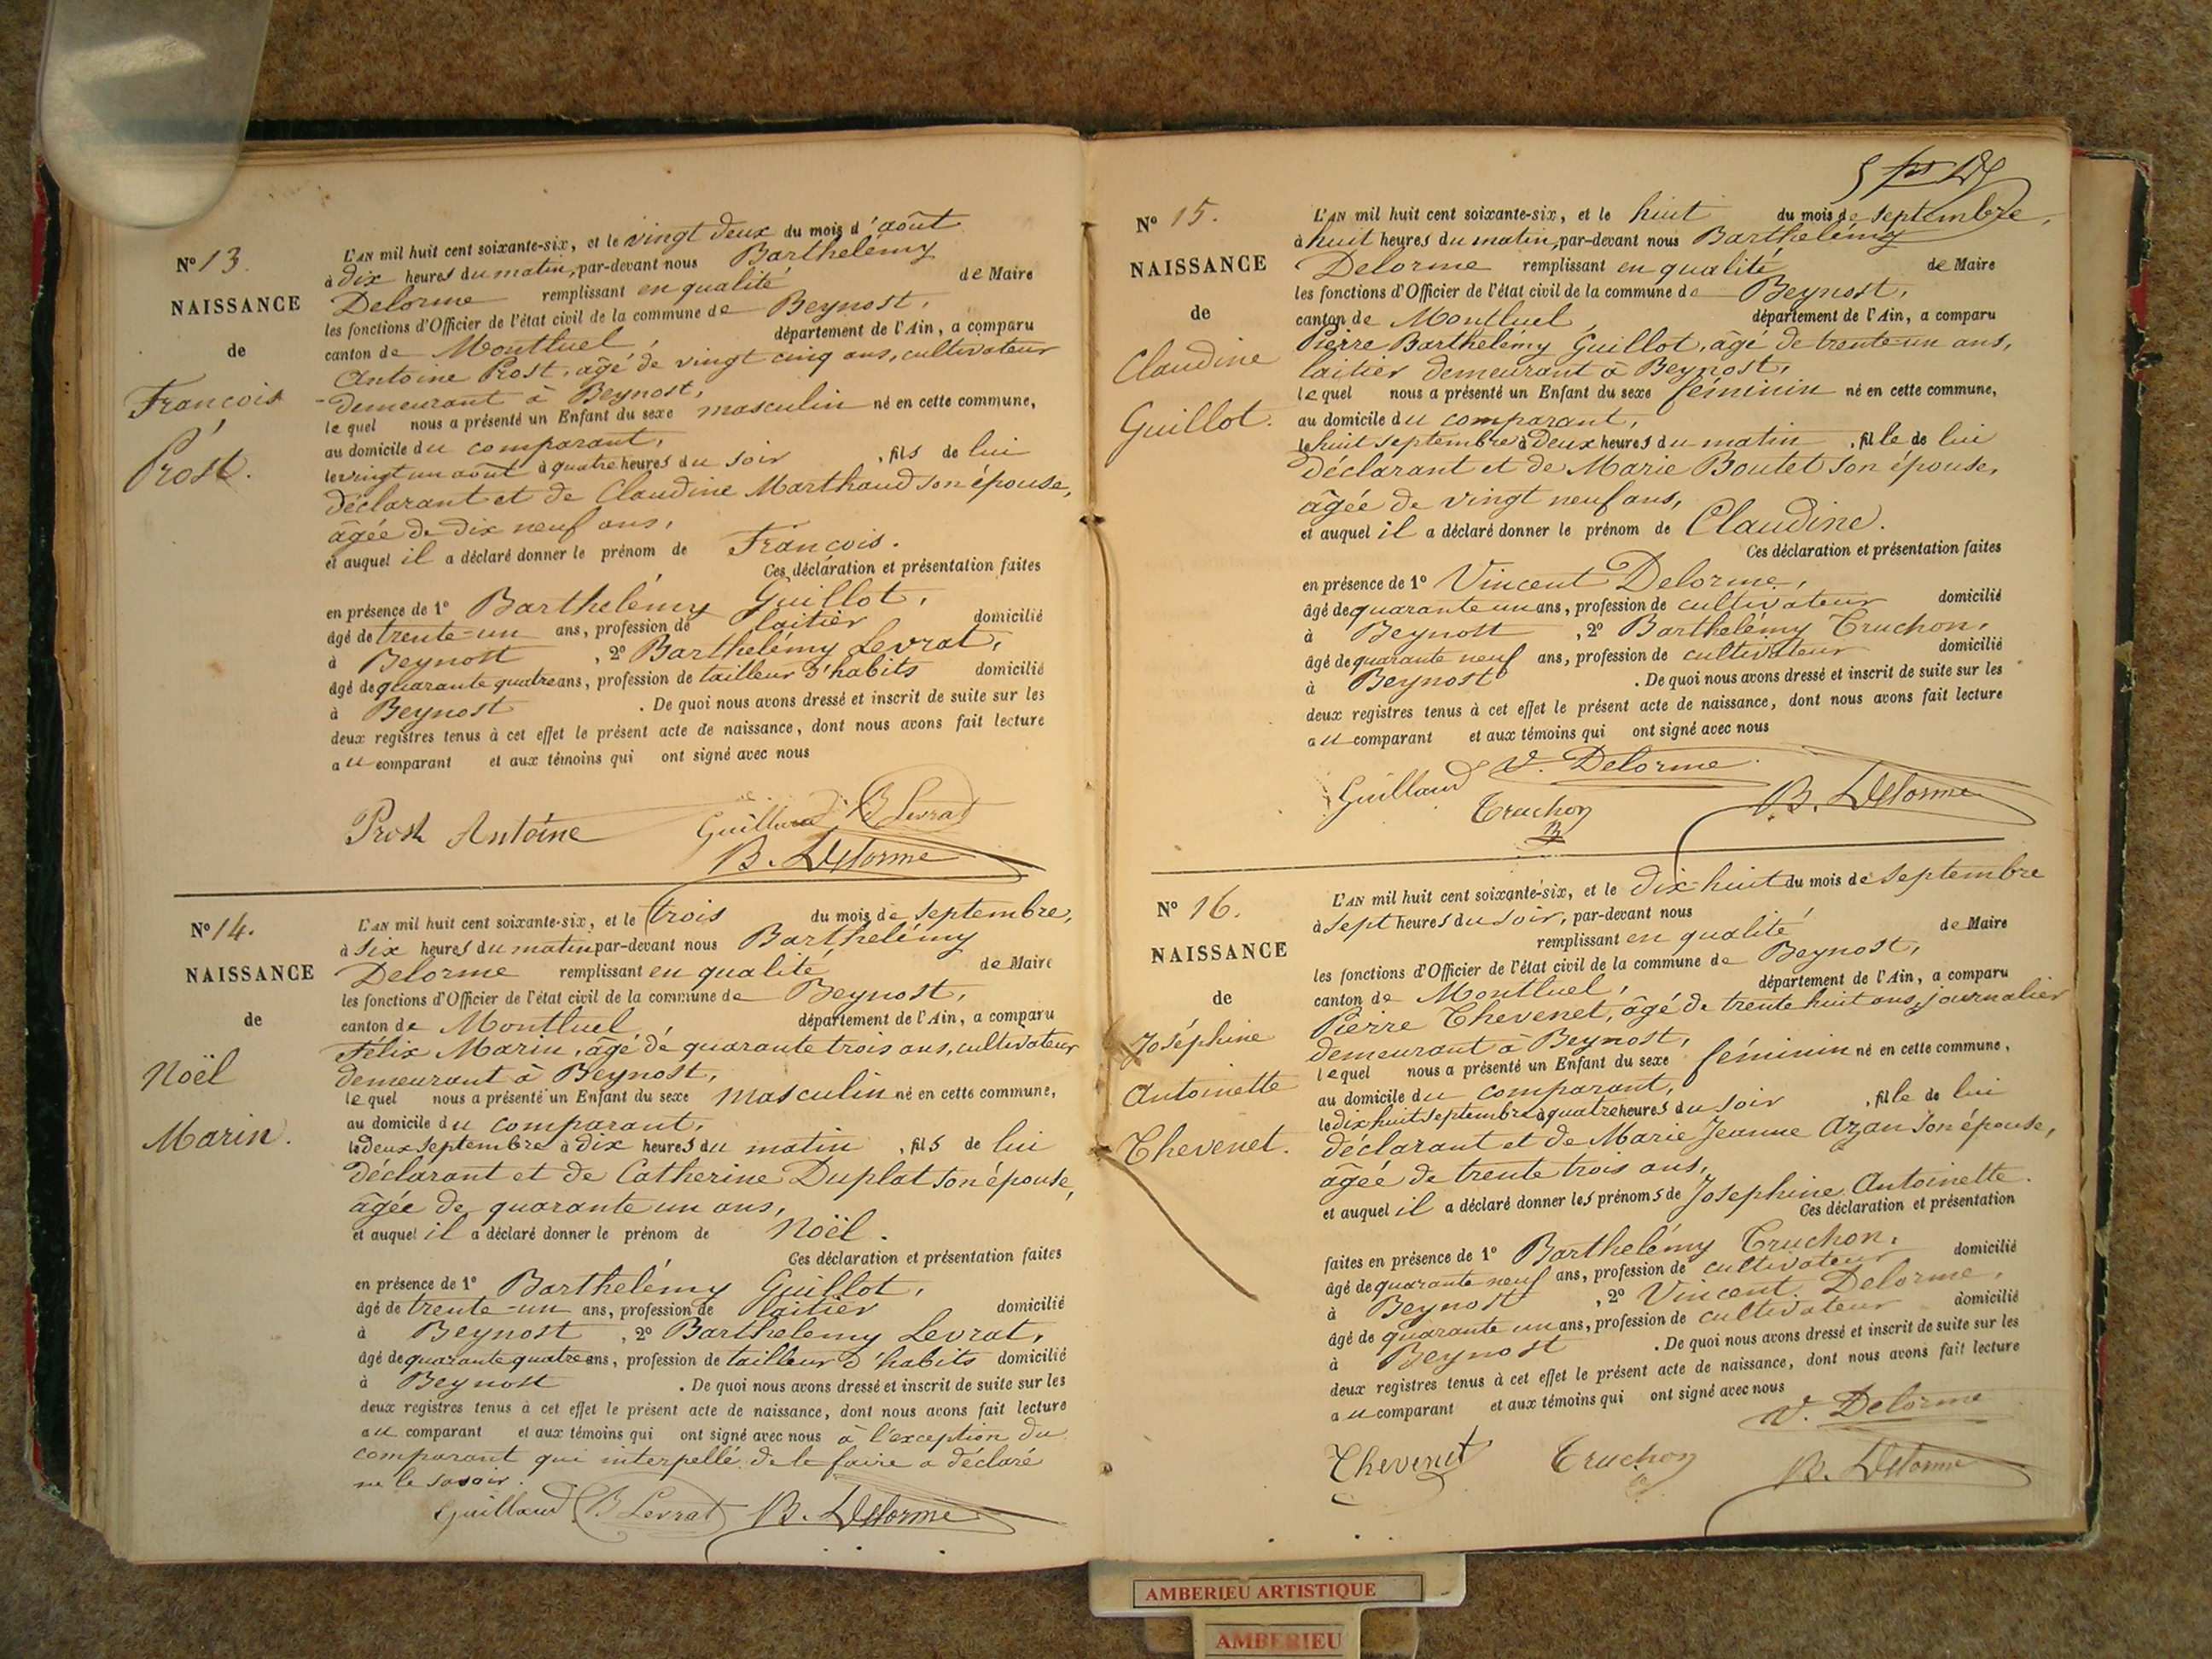 Nº 13.
NAISSANCE
de
François
Prost.
L'AN mil huit cent soixante-six, et le vingt deux du mois d'août
à dix heures du matin, par-devant nous Barthelémy
Delorme remplissant en qualité de Maire
les fonctions d'Officier de l'état civil de la commune de Beynost,
canton de Montluel, département de l'Ain, a comparu
Antoine Prost, âgé de vingt cinq ans, cultivateur
demeurant à Beynost,
lequel nous a présenté un Enfant du sexe masculin né en cette commune,
au domicile du comparant,
le vingt un août à quatre heures du soir, fils de lui
déclarant et de Claudine Marthaud son épouse,
âgée de dix neuf ans,
et auquel il a déclaré donner le prénom de François.
Ces déclaration et présentation faites
en présence de 1º Barthelémy Guillot,
âgé de trente-un ans, profession de laitier domicilié
à Beynost, 2º Barthelémy Levrat,
âgé de quarante quatre ans, profession de tailleur d'habits domicilié
à Beynost. De quoi nous avons dressé et inscrit de suite sur les
deux registres tenus à cet effet le présent acte de naissance, dont nous avons fait lecture
au comparant et aux témoins qui ont signé avec nous
Prost Antoine Guillaud B Levrat
B. Delorme
Nº 14.
NAISSANCE
de
Noël
Marin.
L'AN mil huit cent soixante-six, et le trois du mois de septembre,
à six heures du matin par-devant nous Barthelémy
Delorme remplissant en qualité de Maire
les fonctions d'Officier de l'état civil de la commune de Beynost,
canton de Montluel, département de l'Ain, a comparu
Félix Marin, âgé de quarante trois ans, cultivateur
demeurant à Beynost,
lequel nous a présenté un Enfant du sexe masculin né en cette commune,
au domicile du comparant,
le deux septembre à dix heures du matin, fils de lui
déclarant et de Catherine Duplat son épouse,
âgée de quarante un ans,
et auquel il a déclaré donner le prénom de Noël.
Ces déclaration et présentation faites
en présence de 1º Barthelémy Guillot,
âgé de trente-un ans, profession de laitier domicilié
à Beynost, 2º Barthelemy Levrat,
âgé de quarante quatre ans, profession de tailleur d'habits domicilié
à Beynost. De quoi nous avons dressé et inscrit de suite sur les
deux registres tenus à cet effet le présent acte de naissance, dont nous avons fait lecture
au comparant et aux témoins qui ont signé avec nous à l'exception du
comparant qui interpellé de le faire a déclaré
ne le savoir.
Guillaud B Levrat B. Delorme
Nº 15.
NAISSANCE
de
Claudine
Guillot.
L'AN mil huit cent soixante-six, et le huit du mois de septembre,
à huit heures du matin, par-devant nous Barthelémy
Delorme remplissant en qualité de Maire
les fonctions d'Officier de l'état civil de la commune de Beynost,
canton de Montluel, département de l'Ain, a comparu
Pierre Barthélemy Guillot, âgé de trente-un ans,
laitier demeurant à Beynost,
lequel nous a présenté un Enfant du sexe féminin né en cette commune,
au domicile du comparant,
le huit septembre à deux heures du matin, fille de lui
déclarant et de Marie Boutet son épouse,
âgée de vingt neuf ans,
et auquel il a déclaré donner le prénom de Claudine.
Ces déclaration et présentation faites
en présence de 1º Vincent Delorme,
âgé de quarante un ans, profession de cultivateur domicilié
à Beynost, 2º Barthelémy Truchon,
âgé de quarante neuf ans, profession de cultivateur domicilié
à Beynost. De quoi nous avons dressé et inscrit de suite sur les
deux registres tenus à cet effet le présent acte de naissance, dont nous avons fait lecture
au comparant et aux témoins qui ont signé avec nous
Guillaud V. Delorme
Truchon B. Delorme
Nº 16.
NAISSANCE
de
Joséphine
Antoinette
Thevenet.
L'AN mil huit cent soixante-six, et le dix-huit du mois de septembre
à sept heures du soir, par-devant nous
remplissant en qualité de Maire
les fonctions d'Officier de l'état civil de la commune de Beynost,
canton de Montluel, département de l'Ain, a comparu
Pierre Thevenet, âgé de trente huit ans, journalier
demeurant à Beynost,
lequel nous a présenté un Enfant du sexe féminin né en cette commune,
au domicile du comparant,
le dix huit septembre à quatre heures du soir, fille de lui
déclarant et de Marie Jeanne Azan son épouse,
âgée de trente trois ans,
et auquel il a déclaré donner les prénoms de Josephine Antoinette.
Ces déclaration et présentation
faites en présence de 1º Barthelémy Truchon,
âgé de quarante neuf ans, profession de cultivateur domicilié
à Beynost, 2º Vincent Delorme,
âgé de quarante un ans, profession de cultivateur domicilié
à Beynost. De quoi nous avons dressé et inscrit de suite sur les
deux registres tenus à cet effet le présent acte de naissance, dont nous avons fait lecture
au comparant et aux témoins qui ont signé avec nous
V. Delorme
Thevenet Truchon B. Delorme
AMBERIEU ARTISTIQUE
AMBERIEU